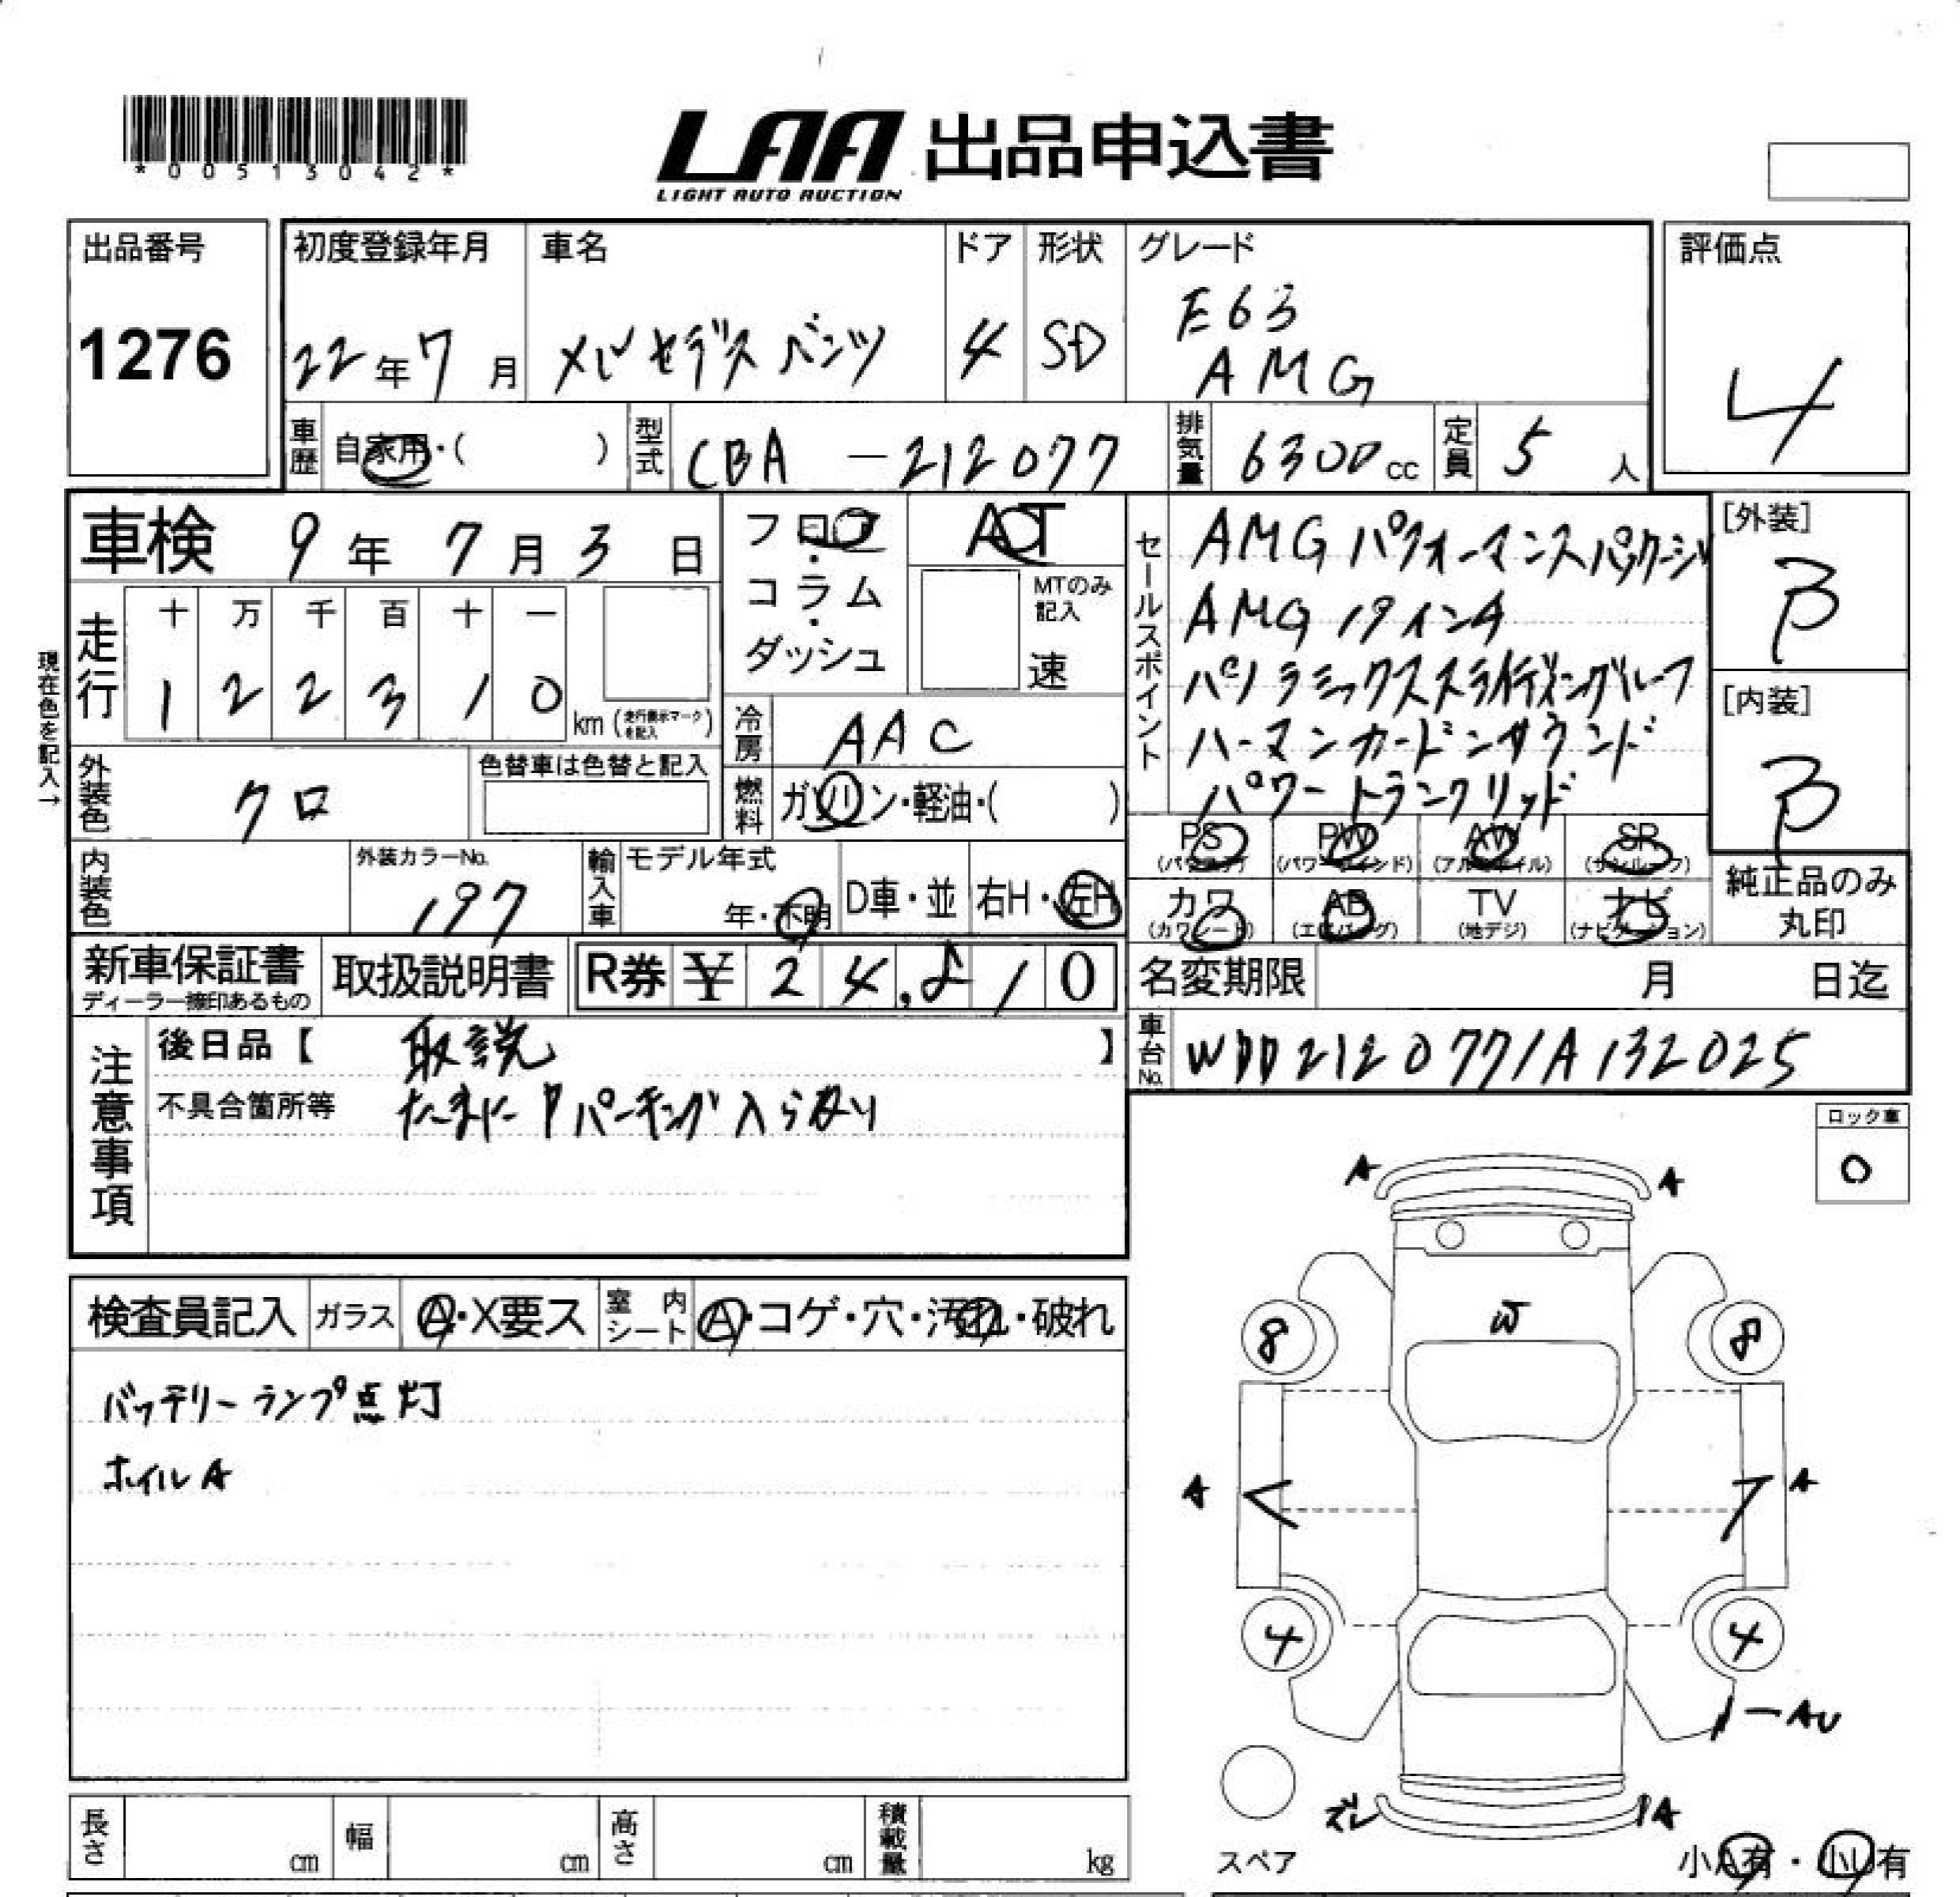 *00513042*
LAA 出品申込書
LIGHT AUTO AUCTION
出品番号
1276
初度登録年月
22年7月
車名
メルセデスベンツ
ドア
4
形状
SD
グレード
E63
AMG
評価点
4
車歴 自家用・( )
型式 CBA-212077
排気量 6300cc
定員 5人
車検 9年7月3日
走行 十 万 千 百 十 一
1 2 2 3 1 0 km (走行表示マークを記入)
現在色を記入→
フロア・コラム・ダッシュ
AT
MTのみ記入
速
冷房 AAC
燃料 ガソリン・軽油・( )
セールスポイント
AMG パフォーマンスパッケージ
AMG 19インチ
パノラミックスライディングルーフ
ハーマンカードンサウンド
パワートランクリッド
[外装]
B
[内装]
B
外装色 クロ
色替車は色替と記入
内装色
外装カラーNo.
197
輸入車
モデル年式
年・不明
D車・並
右H・左H
PS (パワステ)
PW (パワーウインド)
AW (アルミホイル)
SR (サンルーフ)
カワ (カワシート)
AB (エアバッグ)
TV (地デジ)
ナビ (ナビゲーション)
純正品のみ
丸印
新車保証書
ディーラー捺印あるもの
取扱説明書
R券 ¥ 24,810
名変期限 月 日迄
車台No. WDD2120771A132025
注意事項
後日品【 取説 】
不具合箇所等 たまにPパーキング入らない
ロック車
0
検査員記入
ガラス A・X要ス
室内シート A・コゲ・穴・汚れ・破れ
バッテリーランプ点灯
ホイルA
A A
W
8 8
A A
4 4
AU
ズレ A
スペア
小A有・小U有
長さ cm
幅 cm
高さ cm
積載量 kg